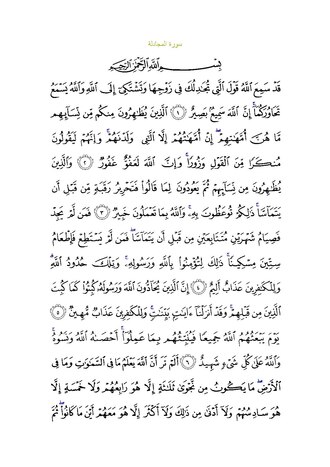 سورة المجادلة
بِسْمِ اللَّهِ الرَّحْمَٰنِ الرَّحِيمِ
قَدْ سَمِعَ ٱللَّهُ قَوْلَ ٱلَّتِى تُجَٰدِلُكَ فِى زَوْجِهَا وَتَشْتَكِىٓ إِلَى ٱللَّهِ وَٱللَّهُ يَسْمَعُ
تَحَاوُرَكُمَآ ۚ إِنَّ ٱللَّهَ سَمِيعٌۢ بَصِيرٌ ١ ٱلَّذِينَ يُظَٰهِرُونَ مِنكُم مِّن نِّسَآئِهِم
مَّا هُنَّ أُمَّهَٰتِهِمْ ۖ إِنْ أُمَّهَٰتُهُمْ إِلَّا ٱلَّٰٓـِٔى وَلَدْنَهُمْ ۚ وَإِنَّهُمْ لَيَقُولُونَ
مُنكَرًا مِّنَ ٱلْقَوْلِ وَزُورًا ۚ وَإِنَّ ٱللَّهَ لَعَفُوٌّ غَفُورٌ ٢ وَٱلَّذِينَ
يُظَٰهِرُونَ مِن نِّسَآئِهِمْ ثُمَّ يَعُودُونَ لِمَا قَالُوا۟ فَتَحْرِيرُ رَقَبَةٍ مِّن قَبْلِ أَن
يَتَمَآسَّا ۚ ذَٰلِكُمْ تُوعَظُونَ بِهِۦ ۚ وَٱللَّهُ بِمَا تَعْمَلُونَ خَبِيرٌ ٣ فَمَن لَّمْ يَجِدْ
فَصِيَامُ شَهْرَيْنِ مُتَتَابِعَيْنِ مِن قَبْلِ أَن يَتَمَآسَّا ۖ فَمَن لَّمْ يَسْتَطِعْ فَإِطْعَامُ
سِتِّينَ مِسْكِينًا ۚ ذَٰلِكَ لِتُؤْمِنُوا۟ بِٱللَّهِ وَرَسُولِهِۦ ۚ وَتِلْكَ حُدُودُ ٱللَّهِ ۗ
وَلِلْكَٰفِرِينَ عَذَابٌ أَلِيمٌ ٤ إِنَّ ٱلَّذِينَ يُحَآدُّونَ ٱللَّهَ وَرَسُولَهُۥ كُبِتُوا۟ كَمَا كُبِتَ
ٱلَّذِينَ مِن قَبْلِهِمْ ۚ وَقَدْ أَنزَلْنَآ ءَايَٰتٍۭ بَيِّنَٰتٍ ۚ وَلِلْكَٰفِرِينَ عَذَابٌ مُّهِينٌ ٥
يَوْمَ يَبْعَثُهُمُ ٱللَّهُ جَمِيعًا فَيُنَبِّئُهُم بِمَا عَمِلُوٓا۟ ۚ أَحْصَىٰهُ ٱللَّهُ وَنَسُوهُ ۚ
وَٱللَّهُ عَلَىٰ كُلِّ شَىْءٍ شَهِيدٌ ٦ أَلَمْ تَرَ أَنَّ ٱللَّهَ يَعْلَمُ مَا فِى ٱلسَّمَٰوَٰتِ وَمَا فِى
ٱلْأَرْضِ ۖ مَا يَكُونُ مِن نَّجْوَىٰ ثَلَٰثَةٍ إِلَّا هُوَ رَابِعُهُمْ وَلَا خَمْسَةٍ إِلَّا
هُوَ سَادِسُهُمْ وَلَآ أَدْنَىٰ مِن ذَٰلِكَ وَلَآ أَكْثَرَ إِلَّا هُوَ مَعَهُمْ أَيْنَ مَا كَانُوا۟ ۖ ثُمَّ